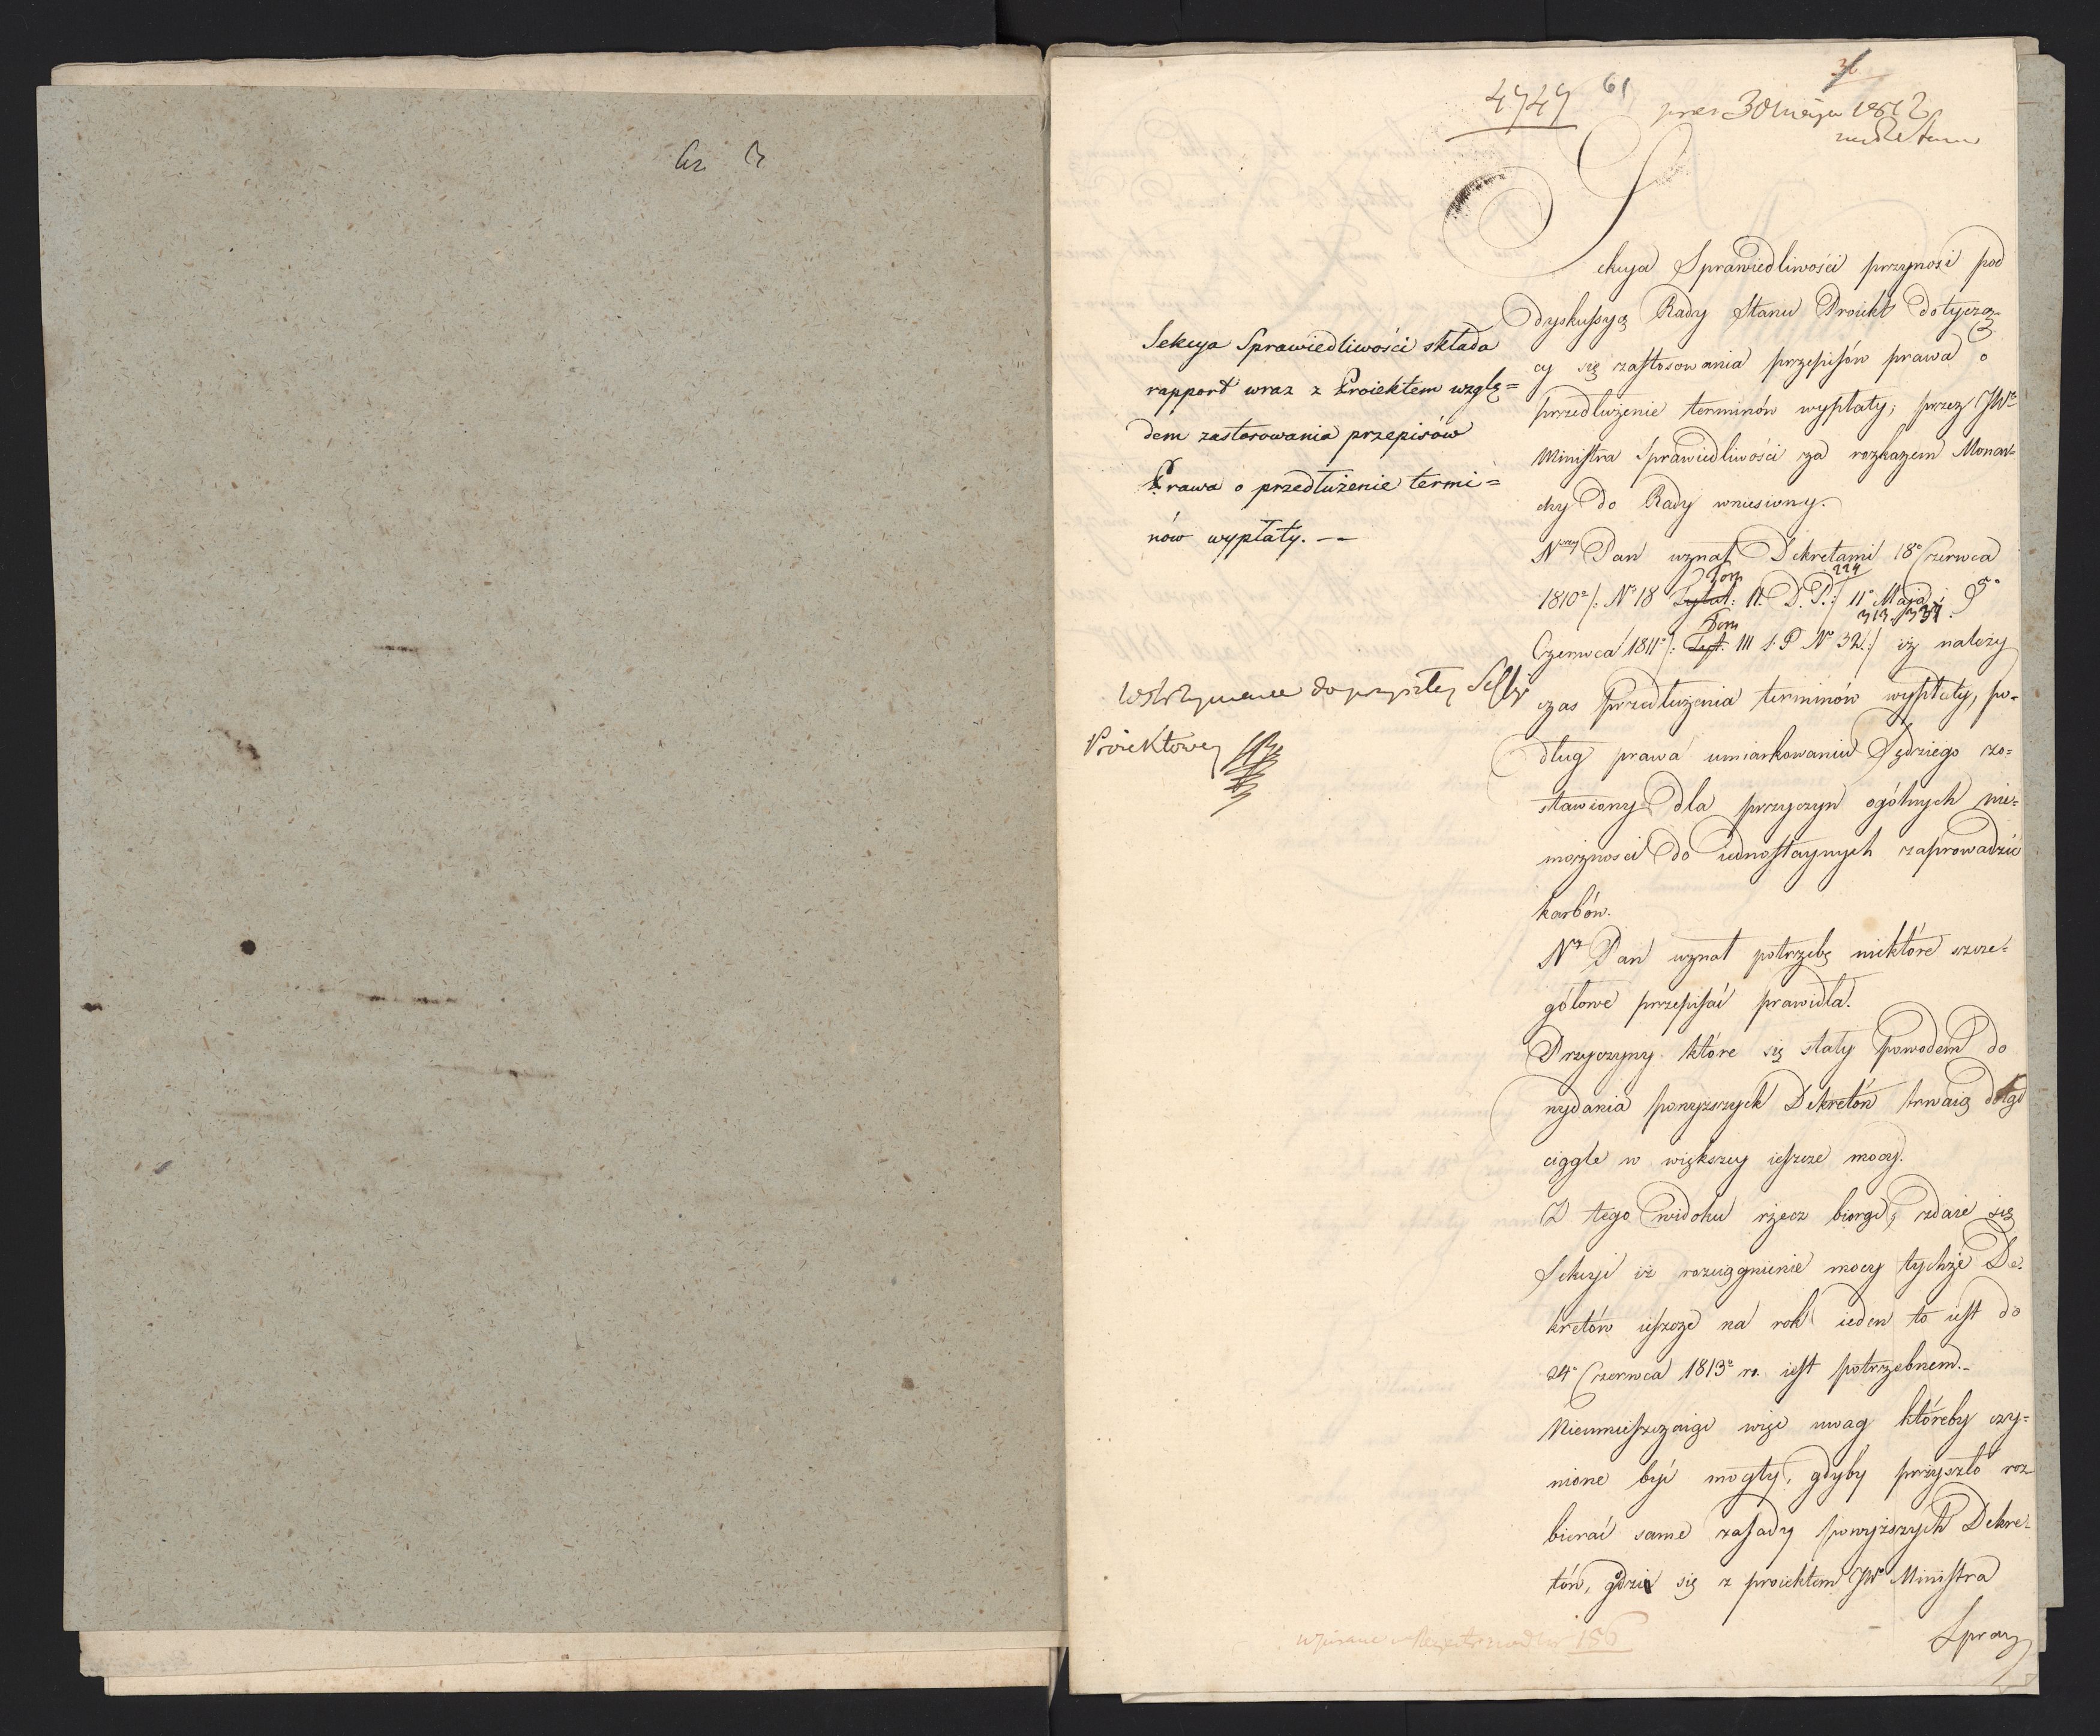 4747
61
pres 30 Maja 1812
Sekcya Sprawiedliwości składa
rapport wraz z Proiektem wzglę=
dem zastosowania przepisów
Prawa o przedłużenie termi=
nów wypłaty. --
Wstrzymane do przyszłey Sessyi
Proiektowey
Sekcya Sprawiedliwości przynosi pod
dyskussyą Rady Stanu Proiekt dotyczą-
cy się zastosowania przepisów prawa o
przedłużenie terminów wypłaty, przez JWo
Ministra Sprawiedliwości za rozkazem Monar=
chy do Rady wniesiony.
Nayy Pan uznał Dekretami 18o Czerwca
Tom 224
1810o /: No 18 Tytuł: II. D. P. :/ 11o Maja i 9o
Tom 313. 331
Czerwca 1811o /: Tyt. III D. P No 32 :/ iż należy
czas przedłużenia terminów wypłaty, po-
dług prawa umiarkowaniu Sędziego zo=
stawiony dla przyczyn ogólnych nie=
możności do iednostaynych zaprowadzić
karbów.
Nr Pan uznał potrzebę niektóre szcze=
gółowe przepisać prawidła.
Przyczyny które się stały powodem do
wydania powyższych Dekretów trwaią dotąd
ciągle w większey ieszcze mocy.
Z tego widoku rzecz biorąc, zdaie się
Sekcyi iż rozciągnienie mocy tychże De=
kretów ieszcze na rok ieden to iest do
24o Czerwca 1813o r. iest potrzebnem.-
Nieumieszczaiąc więc uwag któreby czy=
nione być mogły, gdyby przyszło roz-
bierać same zasady powyższych Dekre=
tów, godzi się z proiektem JWo Ministra
Spraw
156